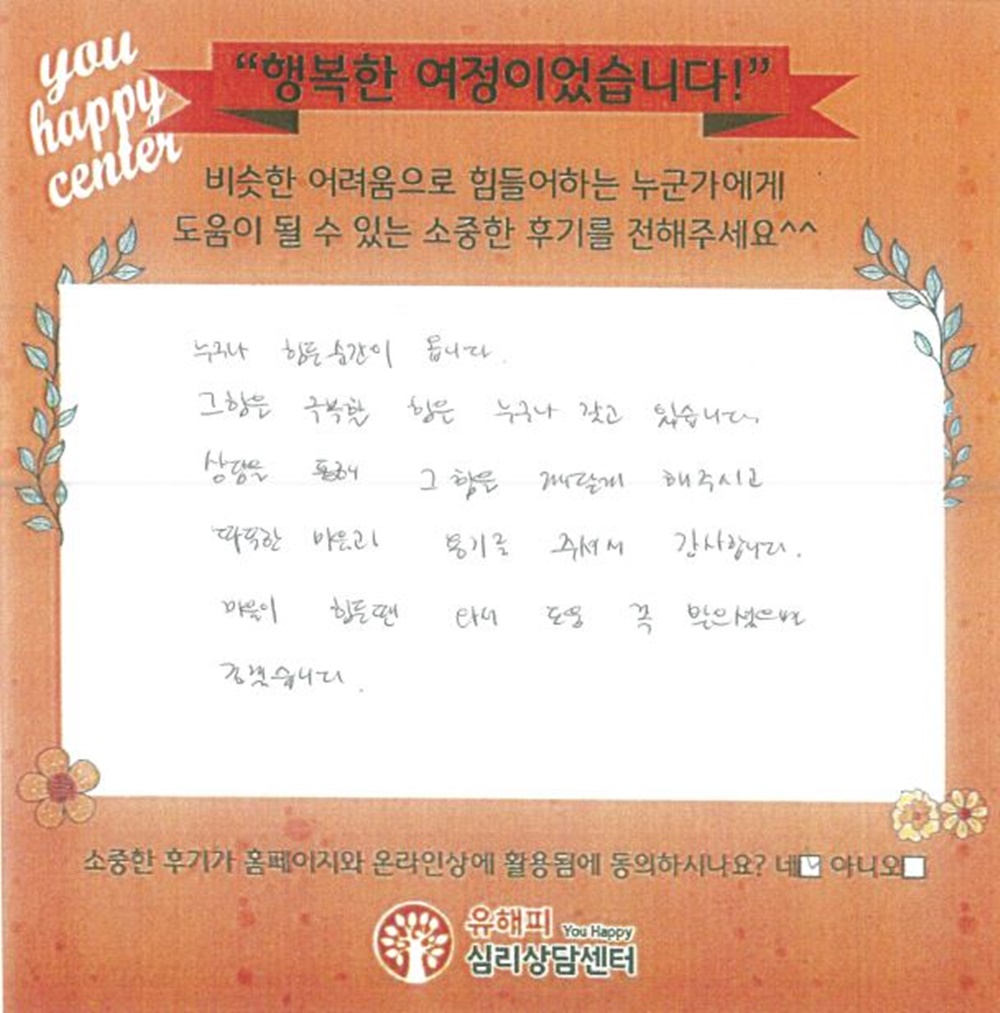 you
happy
center
“행복한 여정이었습니다!”
비슷한 어려움으로 힘들어하는 누군가에게
도움이 될 수 있는 소중한 후기를 전해주세요^^
누구나 힘든 순간이 옵니다.
그 힘을 극복할 힘은 누구나 갖고 있습니다.
상담을 통해 그 힘을 깨닫게 해주시고
따뜻한 마음과 용기를 주셔서 감사합니다.
마음이 힘든땐 다시 도움 꼭 받으셨으면
좋겠습니다.
소중한 후기가 홈페이지와 온라인상에 활용됨에 동의하시나요? 네 아니오
유해피 You Happy
심리상담센터